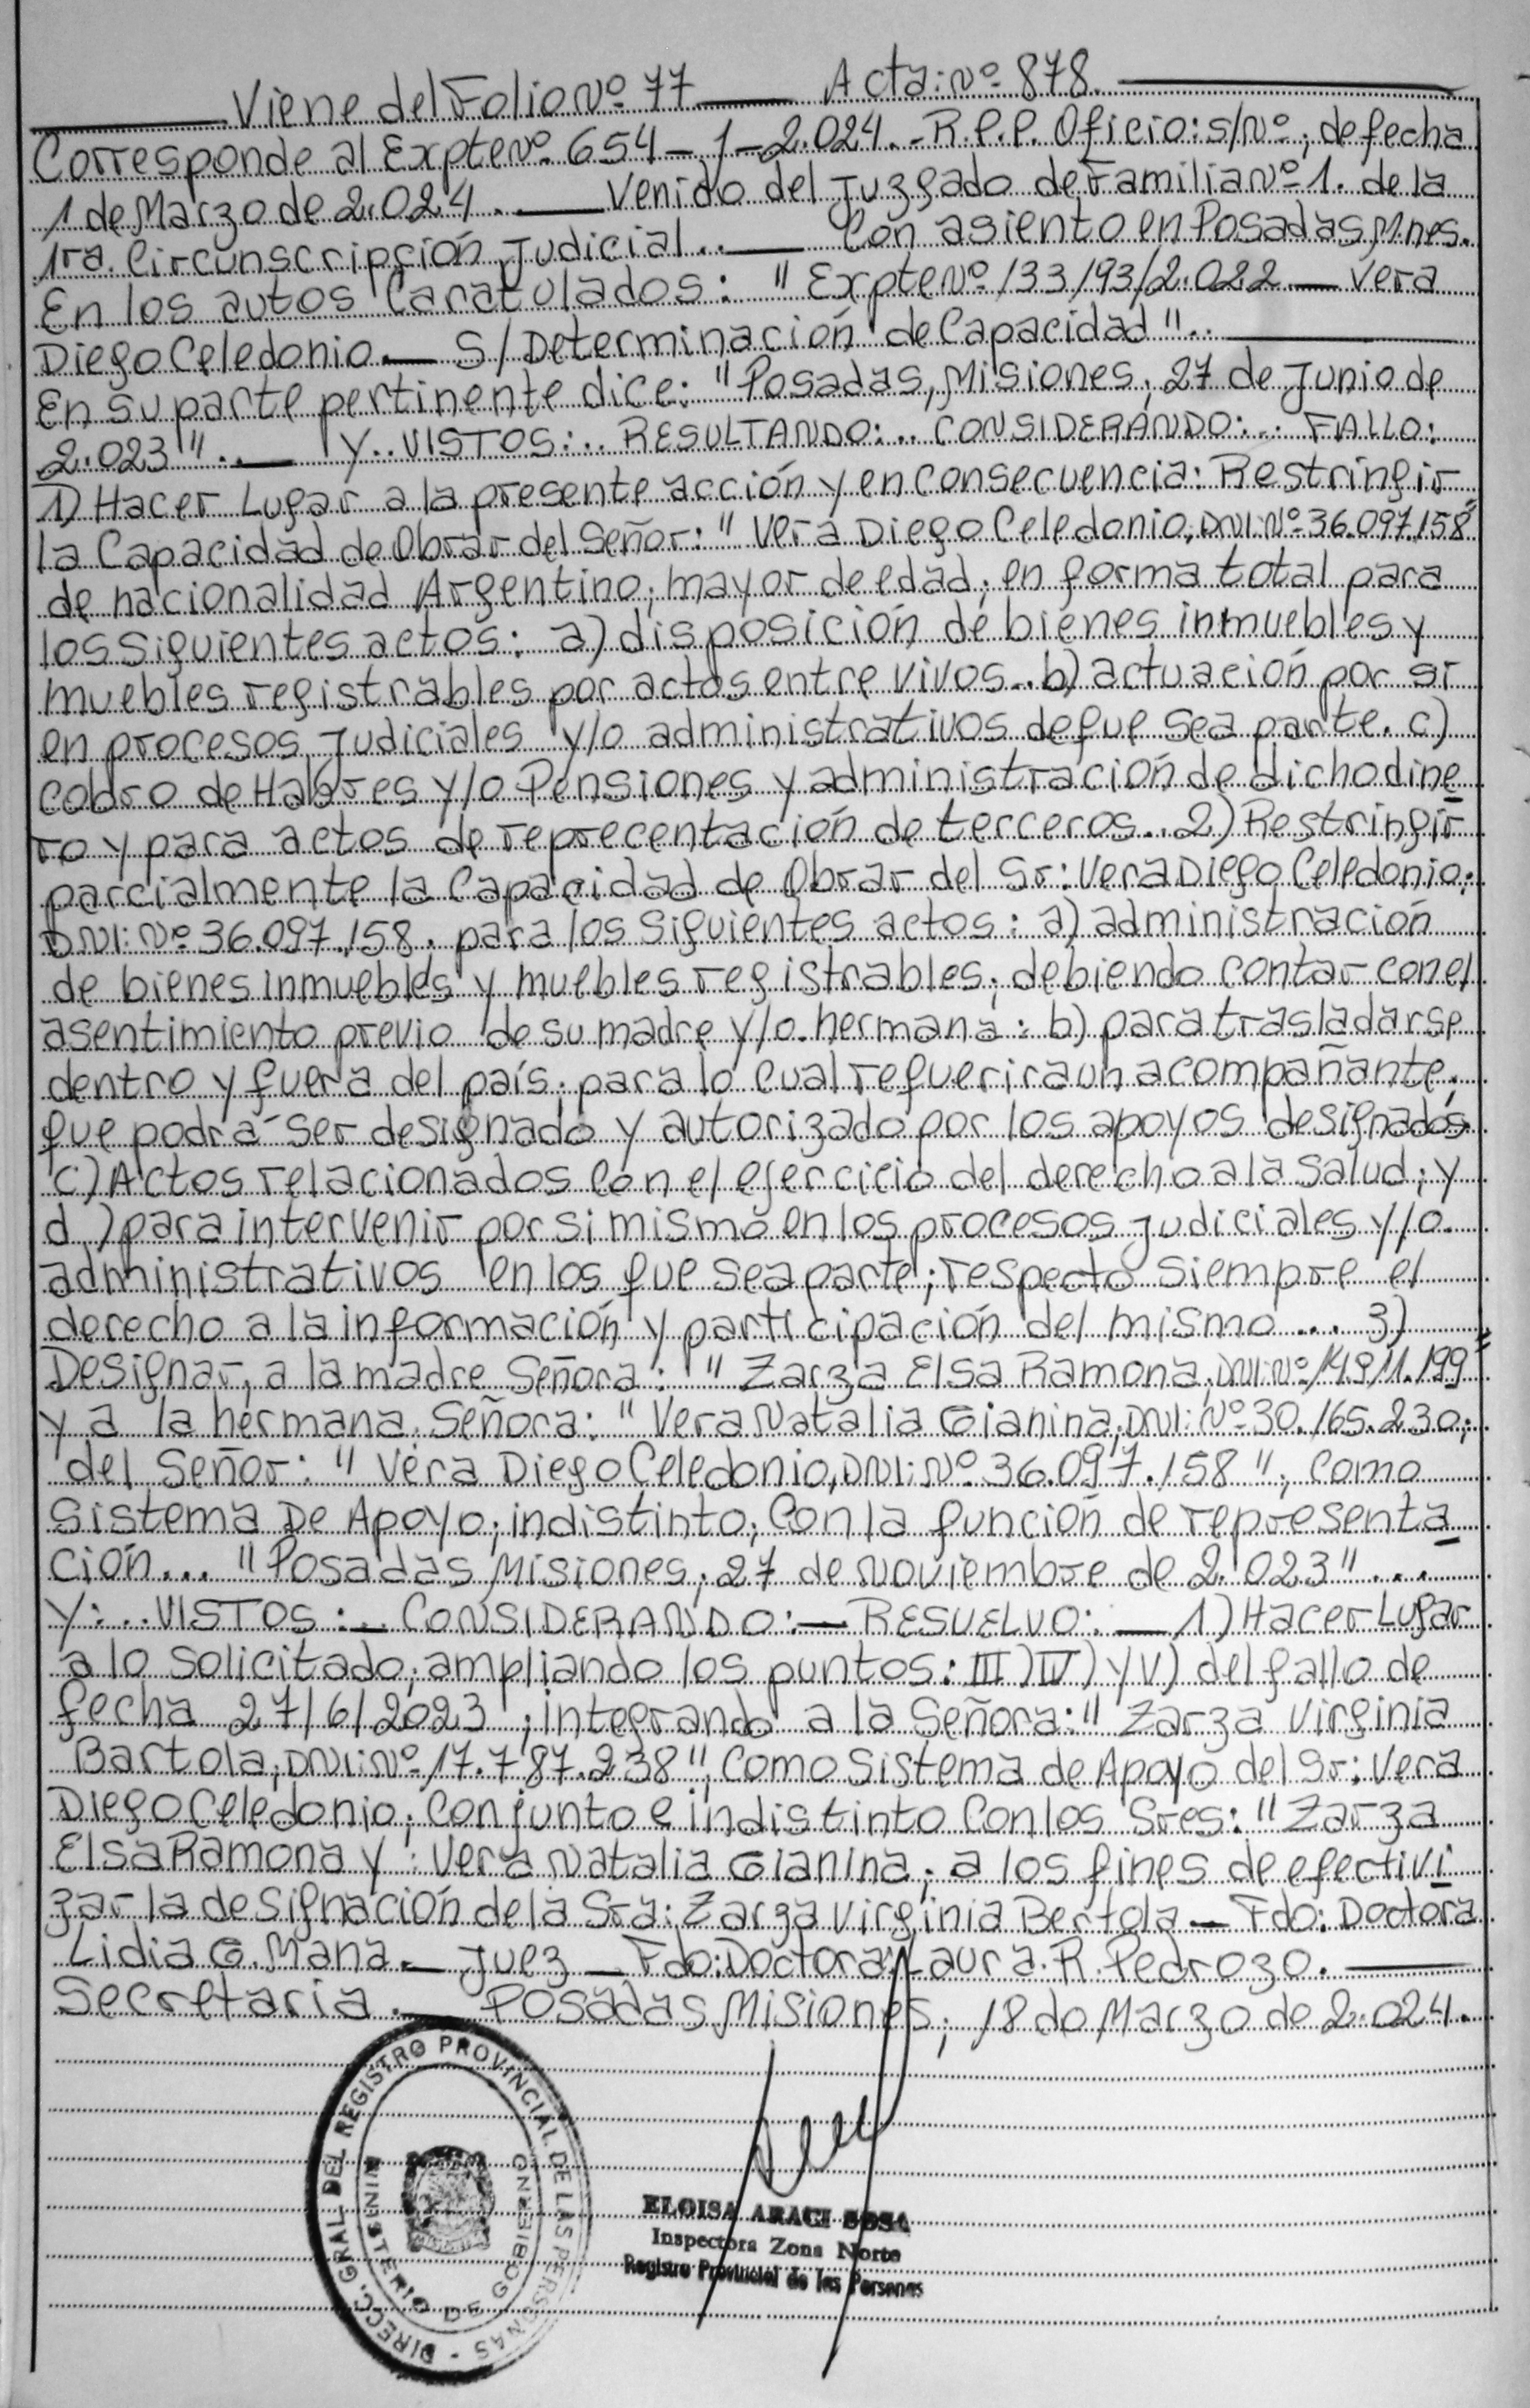 Viene del Folio Nº 77 — Acta: Nº 878. —
Corresponde al Expte Nº 654 - 1 - 2.024. - R.P.P. Oficio: S/Nº; de fecha
1 de Marzo de 2.024.. — Venido del Juzgado de Familia Nº 1. de la
1ra. Circunscripción Judicial.. — Con asiento en Posadas, Mnes.
En los autos Caratulados: "Expte Nº 133193/2.022 — Vera
Diego Celedonio. — S/Determinación de Capacidad".. —
En su parte pertinente dice: "Posadas, Misiones, 27 de Junio de
2.023".. — Y.. VISTOS:.. RESULTANDO:.. CONSIDERANDO:.. FALLO:
1) Hacer Lugar a la presente acción y en Consecuencia: Restringir
la Capacidad de Obrar del Señor: "Vera Diego Celedonio, DNI: Nº 36.097.158"
de nacionalidad Argentino, mayor de edad; en forma total para
los siguientes actos: a) disposición de bienes inmuebles y
muebles registrables por actos entre vivos.. b) actuación por sí
en procesos Judiciales y/o administrativos de que sea parte. c)
Cobro de Habres y/o Pensiones y administración de dicho dine
ro y para actos de reprecentación de terceros... 2) Restringir
parcialmente la Capacidad de Obrar del Sr: Vera Diego Celedonio;
DNI: Nº 36.097.158, para los siguientes actos: a) administración
de bienes inmuebles y muebles registrables; debiendo contar con el
asentimiento previo de su madre y/o hermana: b) para trasladarse
dentro y fuera del país. para lo cual requerira un acompañante.
que podrá ser designado y autorizado por los apoyos designados
c) Actos relacionados Con el ejercicio del derecho a la Salud; y
d) para intervenir por si mismo en los procesos Judiciales y/o
administrativos en los que sea parte; respecto siempre el
derecho a la información y participación del mismo... 3)
Designar, a la madre Señora: "Zarza Elsa Ramona, DNI: Nº 14.911.199"
y a la hermana Señora: "Vera Natalia Gianina, DNI: Nº 30.165.230;
del Señor: "Vera Diego Celedonio, DNI: Nº 36.097.158"; Como
Sistema De Apoyo; indistinto; Con la función de representa
ción... "Posadas, Misiones; 27 de Noviembre de 2.023"....
Y:.. VISTOS:.. CONSIDERANDO: — RESUELVO: — 1) Hacer Lugar
a lo Solicitado; ampliando los puntos: III) IV) y V) del fallo de
fecha 27/6/2023; integrando a la Señora: "Zarza Virginia
Bartola; DNI: Nº 17.787.238", Como Sistema de Apoyo del Sr: Vera
Diego Celedonio; Conjunto e indistinto Con los Sres: "Zarza
Elsa Ramona y: Vera Natalia Gianina; a los fines de efectivi
zar la designación de la Sra: Zarza Virginia Bertola — Fdo: Doctora
Lidia G. Mana. — Juez — Fdo: Doctora: Laura. R. Pedrozo. —
Secretaria. — Posadas, Misiones, 18 de Marzo de 2.024.
DIRECC. GRAL. DEL REGISTRO PROVINCIAL DE LAS PERSONAS -
MINISTERIO DE GOBIERNO
ELOISA ARACI SOSA
Inspectora Zona Norte
Registro Provincial de las Personas